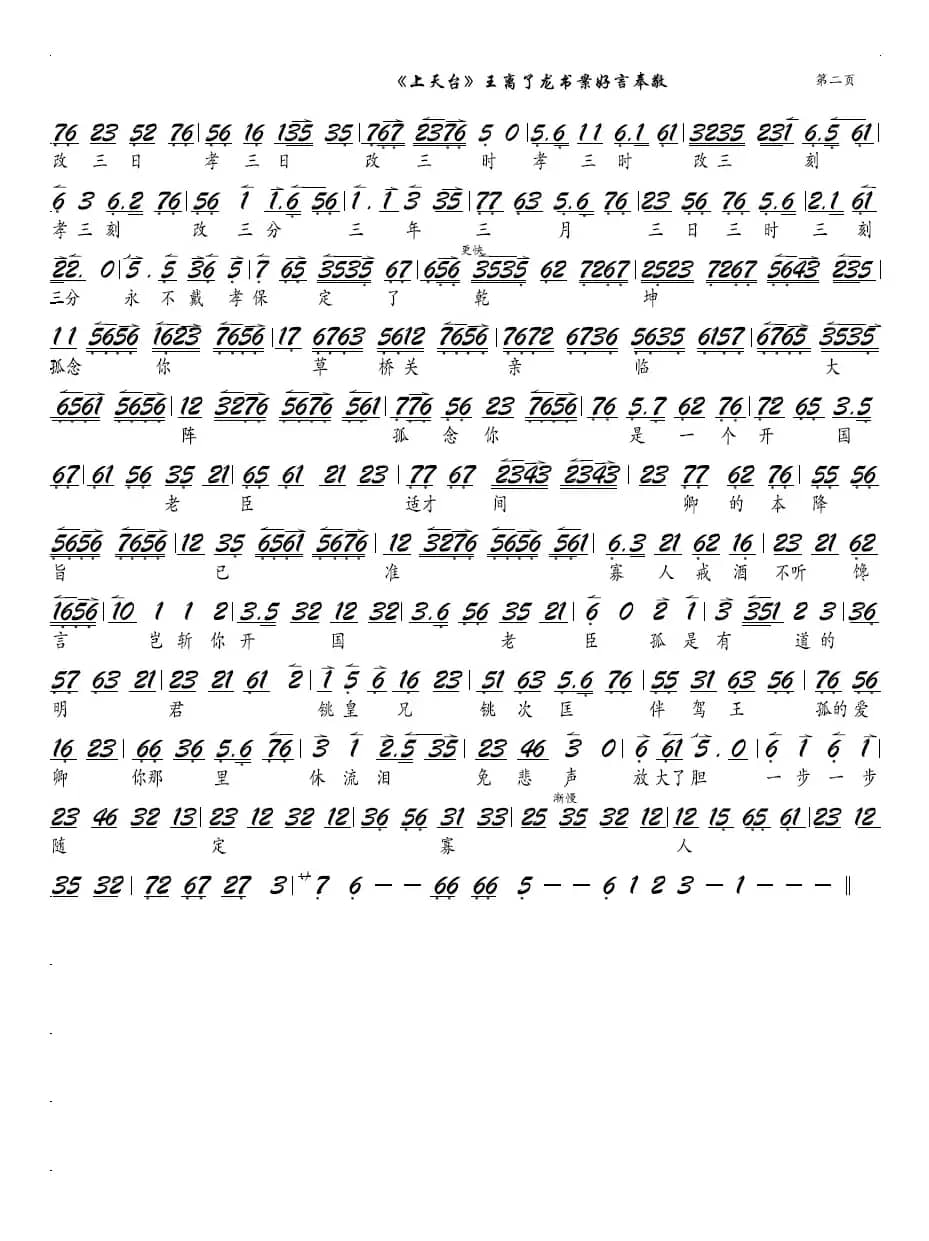 《上天台》王离了龙书案好言奉敬 第二页
76 23 52 76|56 16 135 35|767 2376 5 0|5.6 11 6.1 61|3235 231 6.5 61|
改三日孝三日改三时孝三时改三刻
6 3 6.2 76|56 1 1.6 56|1.1 3 35|77 63 5.6 76|23 56 76 5.6|2.1 61
孝三刻改三分三年三月三日三时三刻
更快
22. 0|5.5 36 5|7 65 3535 67|656 3535 62 7267|2523 7267 5643 235|
三分永不戴孝保定了乾坤
11 5656 1623 7656|17 6763 5612 7656|7672 6736 5635 6157|6765 3535
孤念你草桥关亲临大
6561 5656|12 3276 5676 561|776 56 23 7656|76 5.7 62 76|72 65 3.5
阵孤念你是一个开国
67|61 56 35 21|65 61 21 23|77 67 2343 2343|23 77 62 76|55 56
老臣适才间卿的本降
5656 7656|12 35 6561 5676|12 3276 5656 561|6.3 21 62 16|23 21 62
旨已准寡人戒酒不听馋
1656|10 1 1 2|3.5 32 12 32|3.6 56 35 21|6 0 2 1|3 351 2 3|36
言岂斩你开国老臣孤是有道的
57 63 21|23 21 61 2|1 5 6 16 23|51 63 5.6 76|55 31 63 56|76 56
明君铫皇兄铫次匡伴驾王孤的爱
16 23|66 36 5.6 76|3 1 2.5 35|23 46 3 0|6 61 5.0|6 1 6 1|
卿你那里休流泪免悲声放大了胆一步一步
渐慢
23 46 32 13|23 12 32 12|36 56 31 33|25 35 32 12|12 15 65 61|23 12
随定寡人
35 32|72 67 27 3|廿7 6 — — 66 66 5 — — 6 1 2 3 — 1 — — —‖